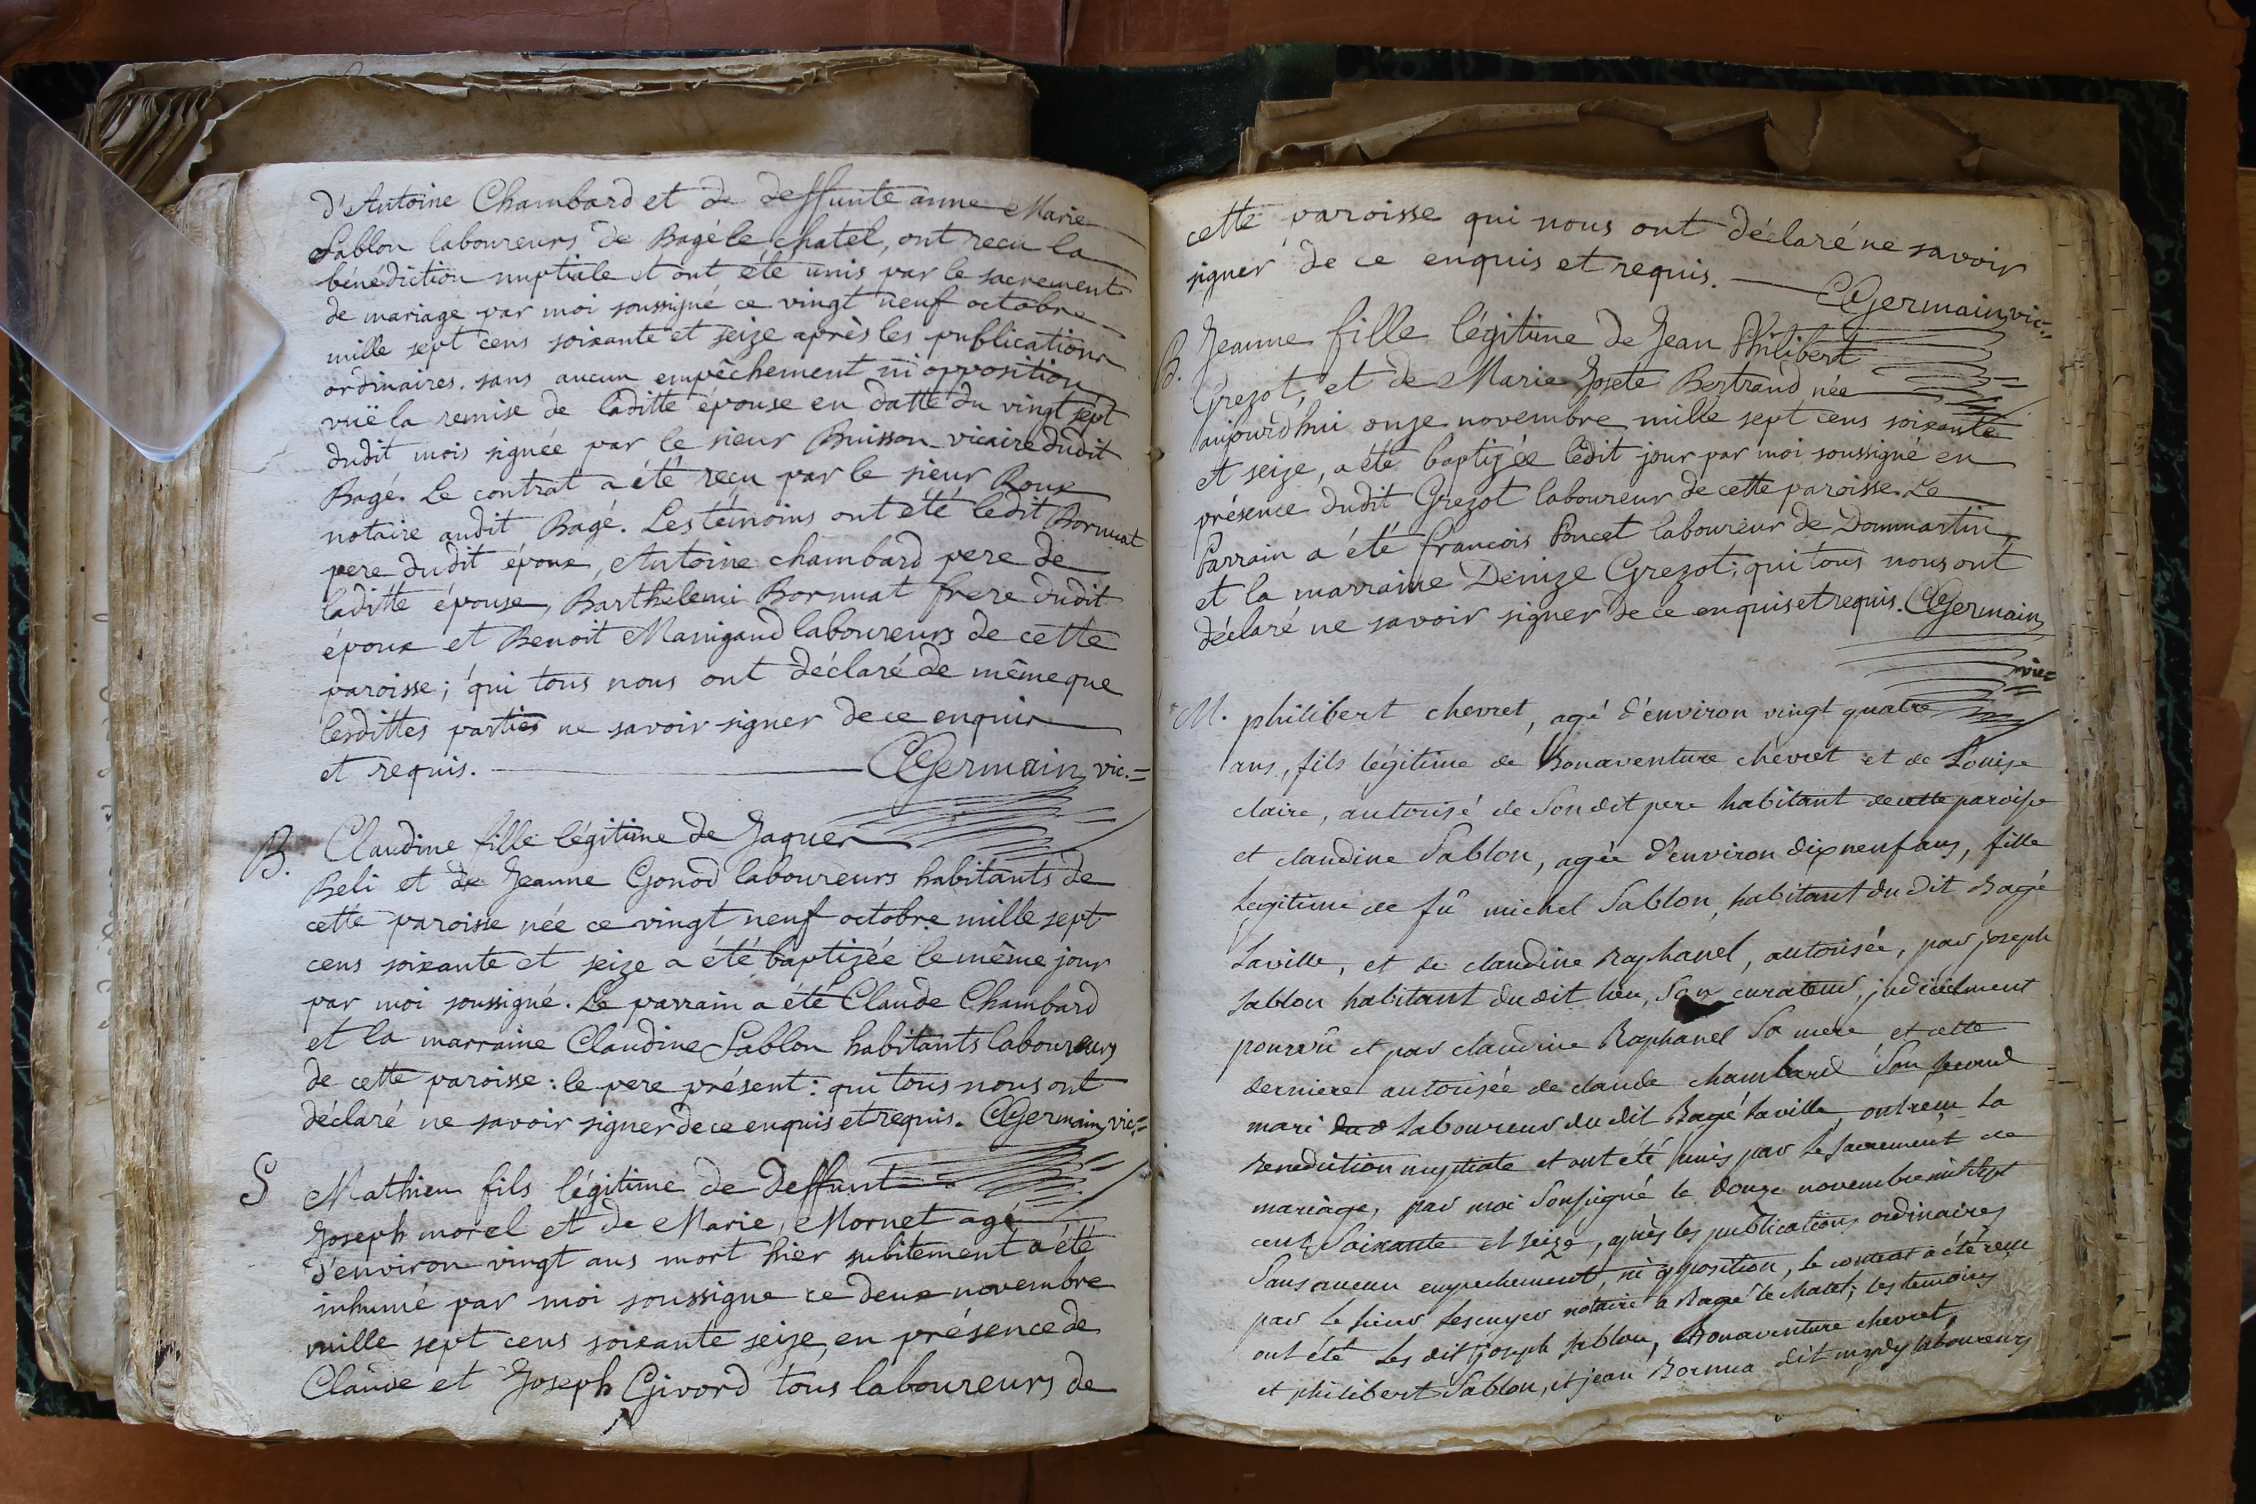 d'Antoine Chambard et de deffunte anne Marie
Sablon laboureurs de Bagé le chatel, ont recu la
bénédiction nuptiale et ont été unis par le sacrement
de mariage par moi soussigné ce vingt neuf octobre
mille sept cens soixante et seize après les publications
ordinaires. sans aucun empêchement ni opposition
vuë la remise de laditte epouse en datte du vingt sept
dudit mois signée par le sieur Buisson vicaire dudit
Bagé. Le contrat a été reçu par le sieur Roux
notaire audit Bagé. Les témoins ont été ledit Bornuat
pere dudit époux, Antoine chambard pere de
laditte épouse, Barthelemi Bornuat frere dudit
époux et Benoit Manigand laboureurs de cette
paroisse; qui tous nous ont déclaré de même que
lesdittes parties ne savoir signer de ce enquis
et requis. CGermain, vic.=
B. Claudine fille légitime de Jaques
Beli et de Jeanne Gonod laboureurs habitants de
cette paroisse née ce vingt neuf octobre mille sept
cens soixante et seize a été baptizée le même jour
par moi soussigné. Le parrain a été Claude Chambard
et la marraine Claudine Sablon habitants laboureurs
de cette paroisse: le pere présent: qui tous nous ont
déclaré ne savoir signer de ce enquis et requis. CGermain, vic.=
S Mathieu fils légitime de deffunt
Joseph morel et de Marie Mornet agé
d'environ vingt ans mort hier subitement a été
inhumé par moi soussigne ce deux novembre
mille sept cens soixante seize, en présence de
Claude et Joseph Givord tous laboureurs de
cette paroisse qui nous ont déclaré ne savoir
signer de ce enquis et requis. CGermain, vic.=
B. Jeanne fille légitime de Jean Philibert
Grezot, et de Marie Josete Bertrand née
aujourd'hui onze novembre mille sept cens soixante
et seize, a été baptizée ledit jour par moi soussigné en
présence dudit Grezot laboureur de cette paroisse. Le
Parrain a été francois Poncet laboureur de Dommartin
et la marraine Denize Grezot; qui tous nous ont
déclaré ne savoir signer de ce enquis et requis. CGermain,
vic=
M. philibert chevret, agé d'environ vingt quatre
ans, fils légitime de Bonaventure chevret et de Louise
claire, autorisé de son dit pere habitant de cette paroisse
et claudine Sablon, agée d'environ dix neuf ans, fille
Legitime de fû michel Sablon, habitant du dit Bagé
Laville, et de claudine Raphanel, autorisée, par joseph
Sablon habitant du dit lieu, son curateur, judiciélment
pourvû et par claudine Raphanel Sa mere et cette
derniere autorisée de claude chambard Son second
mari Laboureur du dit Bagé Laville, ont reçu La
benediction nuptiale et ont été unis par Le sacrement de
mariage, par moi Soussigné le douze novembre mil sept
cent Soixante et seize, après les publications ordinaires
Sans aucun empechement, ni opposition, le contrat a été reçu
par le sieur Lescuyer notaire à Bagé le chatel; les temoins
ont été Les dit joseph Sablon, Bonaventure chevret,
et philibert Sablon, et jean Bornua dit laboureurs